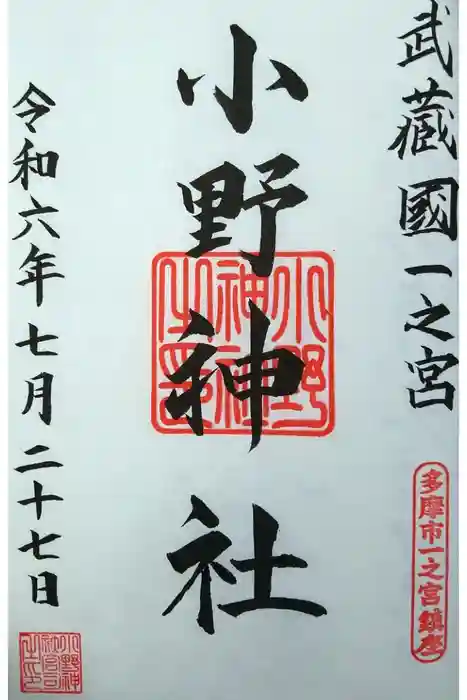 武蔵國一之宮
多摩市一之宮鎮座
小野神社
小野神社之印
令和六年七月二十七日